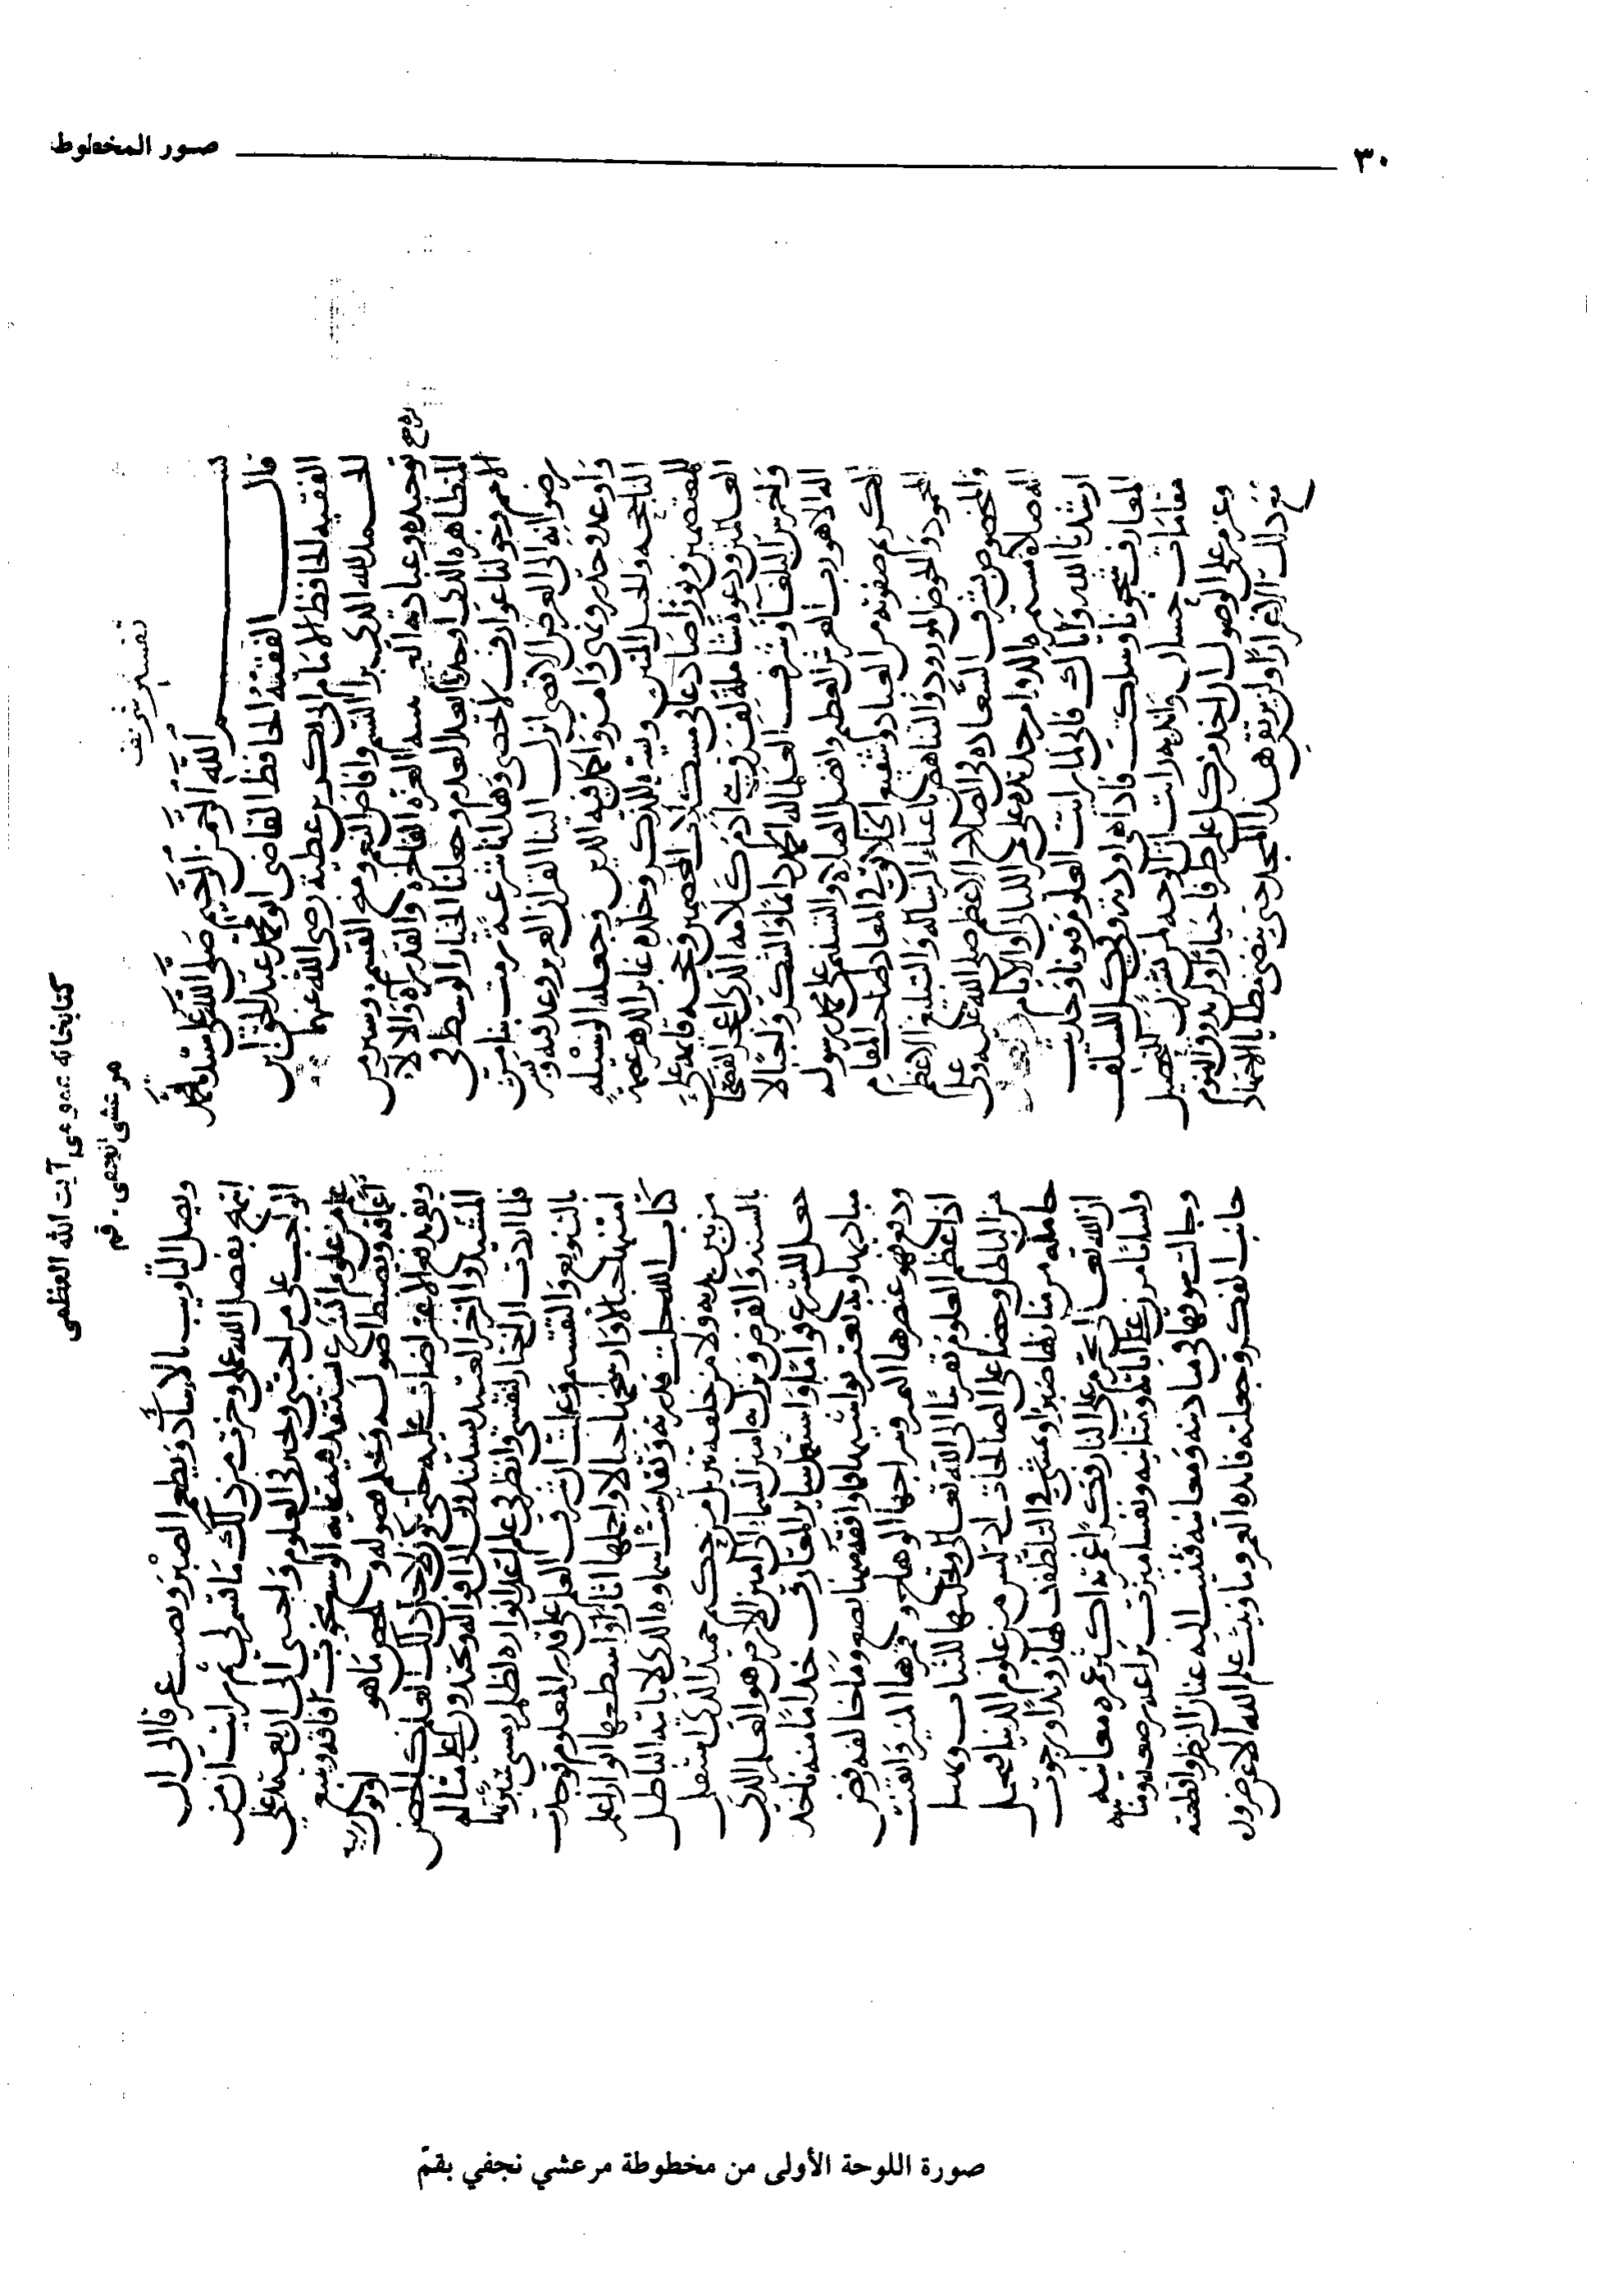 صور المخطوط
٣٠
كتابخانه عمومى آيت الله العظمى
مرعشى نجفى - قم
تفسير شريف
بسم الله الرحمن الرحيم صلى الله على سيدنا محمد
قال الفقيه الحافظ القاضي ابو محمد عبد الحق ابن
الفقيه الحافظ الامام ابي بكر بن عطية رضي الله عنهما
الحمد لله الذي برا النسم وافاض النعم ومنح القسم وسنى من
توحيده وعبادته العصم بيده العزة القاهرة والقدرة والالاء
المتظاهرة الذي اوجدنا بعد العدم وجعلنا الخيار الوسط في
الامم وخولنا عوارف لا تحصى وهدانا شرعة رمت بنا من
رضوانه الى الغرض الاقصى انزل الينا القران العزيز وعد فيه وبشر
واوعد وحذر ونهى وامر واكمل فيه الدين وجعله الوسيلة
الناجحة والحبل المتين ويسره للذكر وخلده غابر الدهر عصمة
للمعتصمين ونورا صادعا في مشكلات المختصمين وحجة قائمة على
العالمين ودعوة شاملة لفرق بني ادم كلامه الذي اعجز الفصحا
واخرس البلغا وشرف العلما له الحمد دائما والشكر واجبا لا
اله الا هو رب العرش العظيم وافضل الصلاة والتسليم على محمد رسوله
الكريم صفوته من العباد وشفيع الخلائق في المعاد صاحب المقام
المحمود والحوض المورود والناهض باعباء الرسالة والتبليغ الاعظم
والمخصوص بشرف السعادة في الصلاح الاعظم صلى الله عليه وعلى
اله صلاة مستمرة الدوام جديدة على مر الليالي والايام
ارشدنا الله واياك فاني لما رايت العلوم فنونا وحديث
المعارف شجونا وسلكت فاذا هي اودية وفي كل للسلف
مقامات حسان واندية رايت ان الوجه لمن تشزن للتحصيل
وعزم على الوصول ان ياخذ من كل علم طرفا خيارا ولن يذوق النوم
مع ذلك الا غرارا ولن يرتقي هذا النجد حتى ينضي مطايا الاجتهاد
ويصل التاويب بالاساد ويطعم الصبر
بفضل الله على وحزت من ذلك ما قسم لي ثم رايت ان من
الواجب على من احتبى وتخير في العلوم واجتبى ان يعتمد على
علم من علوم الشرع يستنفد فيه غاية الوسع يجوب افاقه ويتبع
اعماقه ويضبط اصوله ويحكم فصوله ويلخص ما هو
ويفي بدفع الاعتراضات عليه حتى يكون لاهل ذلك العلم كالحصن
المشيد والذخر العتيد يستندون الى اقواله ويحتذون على مثاله
فلما اردت ان اختار لنفسي وانظر في علم اعد انواره لظلم رمسي سبرتها
بالتنويع والتقسيم وعلمت ان شرف العلم على قدر المعلوم فوجدت
امتنها حبالا وارسخها جبالا واجملها اثارا واسطعها انوارا علم
كتاب الله جلت قدرته وتقدست اسماوه الذي لا ياتيه الباطل
من بين يديه ولا من خلفه تنزيل من حكيم حميد الذي استقل
بالسنة والفرض ونزل به امين السماء الى امين الارض هو العلم الذي
جعل للشرع قواما واستعمل ساير المعارف خداما منه تاخذ
مباديها وبه تعتبر نواشيها فما وافقه منها نصع وما خالفه رفض
ودفع فهو عنصرها النمير وسراجها الوهاج وقمرها المنير وايقنت
انه اعظم العلوم تقريبا الى الله تعالى وتخليصا للنيات
عن الباطل وحضا على الصالحات اذ ليس من علوم الدنيا فيختل
حامله من منازلها صيدا ويمشي في التلطف لها رويدا ورجوت
ان الله تعالى يحرم على النار فكرا عمرته اكثر عمره معانيه
ولسانا مرن على اياته ومثانيه ونفسا ميزت براعة رصفه ومبانيه
وجالت سومها في ميادينه ومعانيه فثنيت اليه عنان النظر واقطعته
جانب الفكر وجعلته فائدة العمر وما ونيت علم الله الا عن ضرورة
صورة اللوحة الأولى من مخطوطة مرعشي نجفي بقمّ